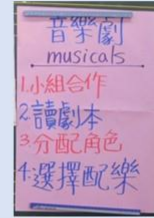 音樂劇
musicals
1.小組合作
2.讀劇本
3.分配角色
4.選擇配樂